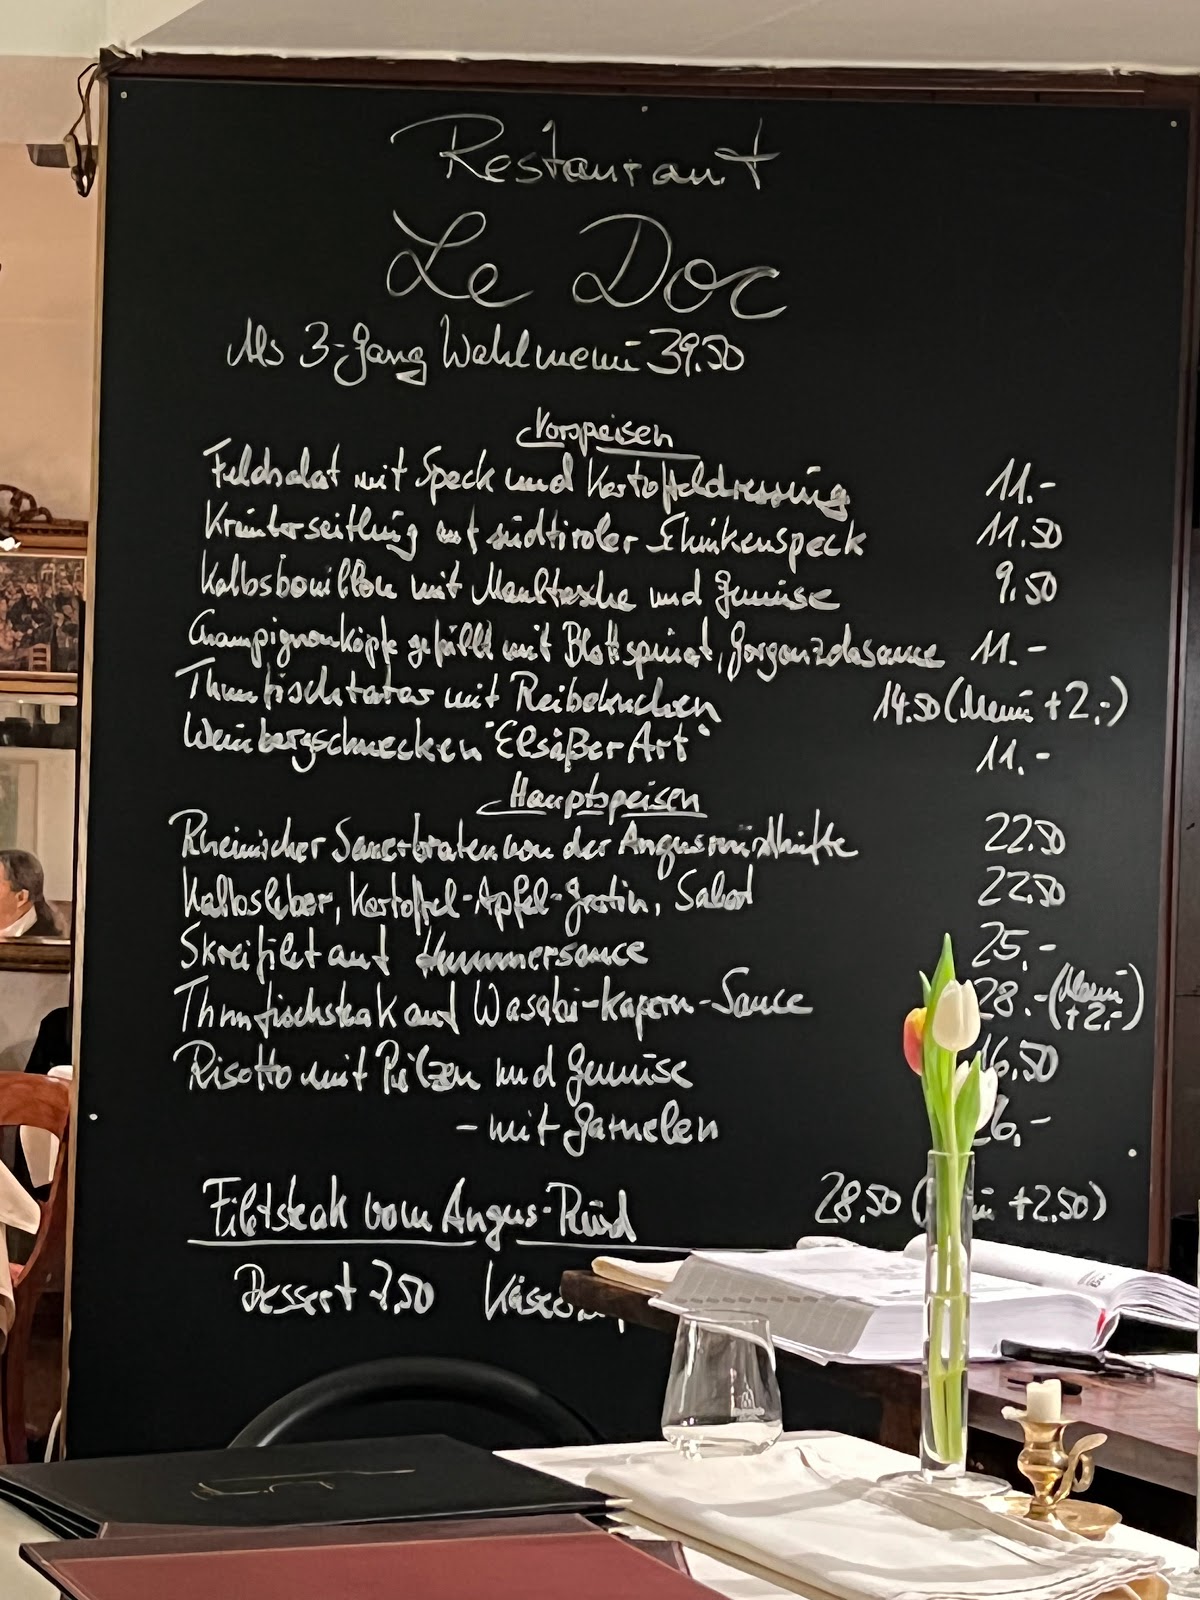 Restaurant
Le Doc
Als 3-Gang Wahlmenü 39.50
Vorspeisen
Feldsalat mit Speck und Kartoffeldressing 11.-
Kräuterseitling auf südtiroler Schinkenspeck 11.50
Kalbsbouillon mit Maultasche und Gemüse 9.50
Champignonköpfe gefüllt mit Blattspinat, Gorgonzolasauce 11.-
Thunfischtatar mit Reibekuchen 14.50 (Menü +2.-)
Weinbergschnecken "Elsäßer Art" 11.-
Hauptspeisen
Rheinischer Sauerbraten von der Angusrindhüfte 22.50
Kalbsleber, Kartoffel-Apfel-Gratin, Salat 22.50
Skreifilet auf Hummersauce 25,-
Thunfischsteak auf Wasabi-Kapern-Sauce 28.- (Menü
+2.-)
Risotto mit Pilzen und Gemüse 16,50
- mit Garnelen 26,-
Filetsteak vom Angus-Rind 28,50 ( +2.50)
Dessert 7,50